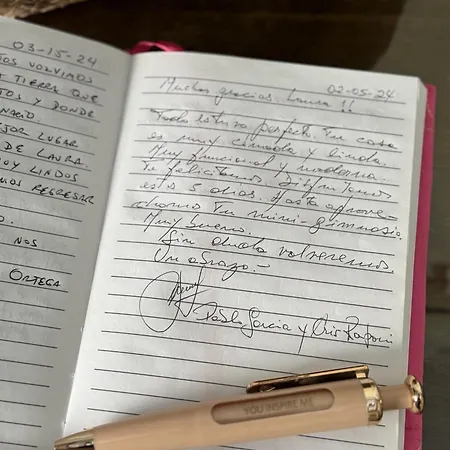 03-15-24
VOLVIMOS
TIERRA QUE
TOS Y DONDE
NACIO.
JOR LUGAR
DE LAURA.
OY LINDOS
MOS REGRESAR
NOS
ORTEGA
Muchas gracias Laura!!
02-05-24
Todo estuvo perfecto. Tu casa
es muy cómoda y linda.
Muy funcional y moderna.
Te felicitamos. Disfrutamos
estos 5 días. Hasta aprove-
chamos tu mini-gimnasio.
Muy bueno.
Sin duda volveremos.
Un abrazo.-
Pablo Garcia y Cris
YOU INSPIRE ME